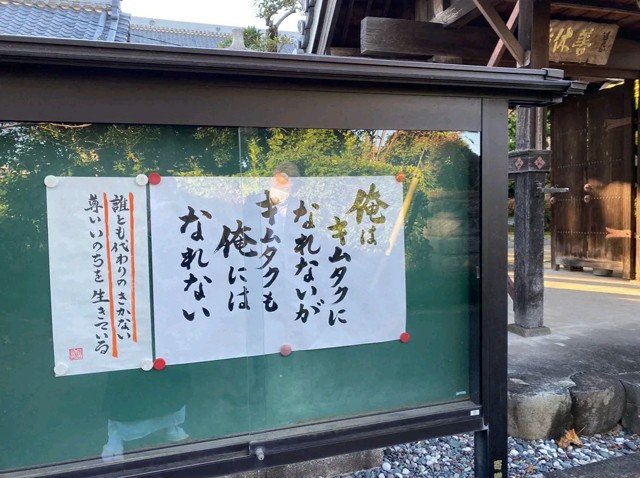 俺は
キムタクに
なれないが
キムタクも
俺には
なれない
誰とも代わりのきかない
尊いいのちを生きている
寄贈